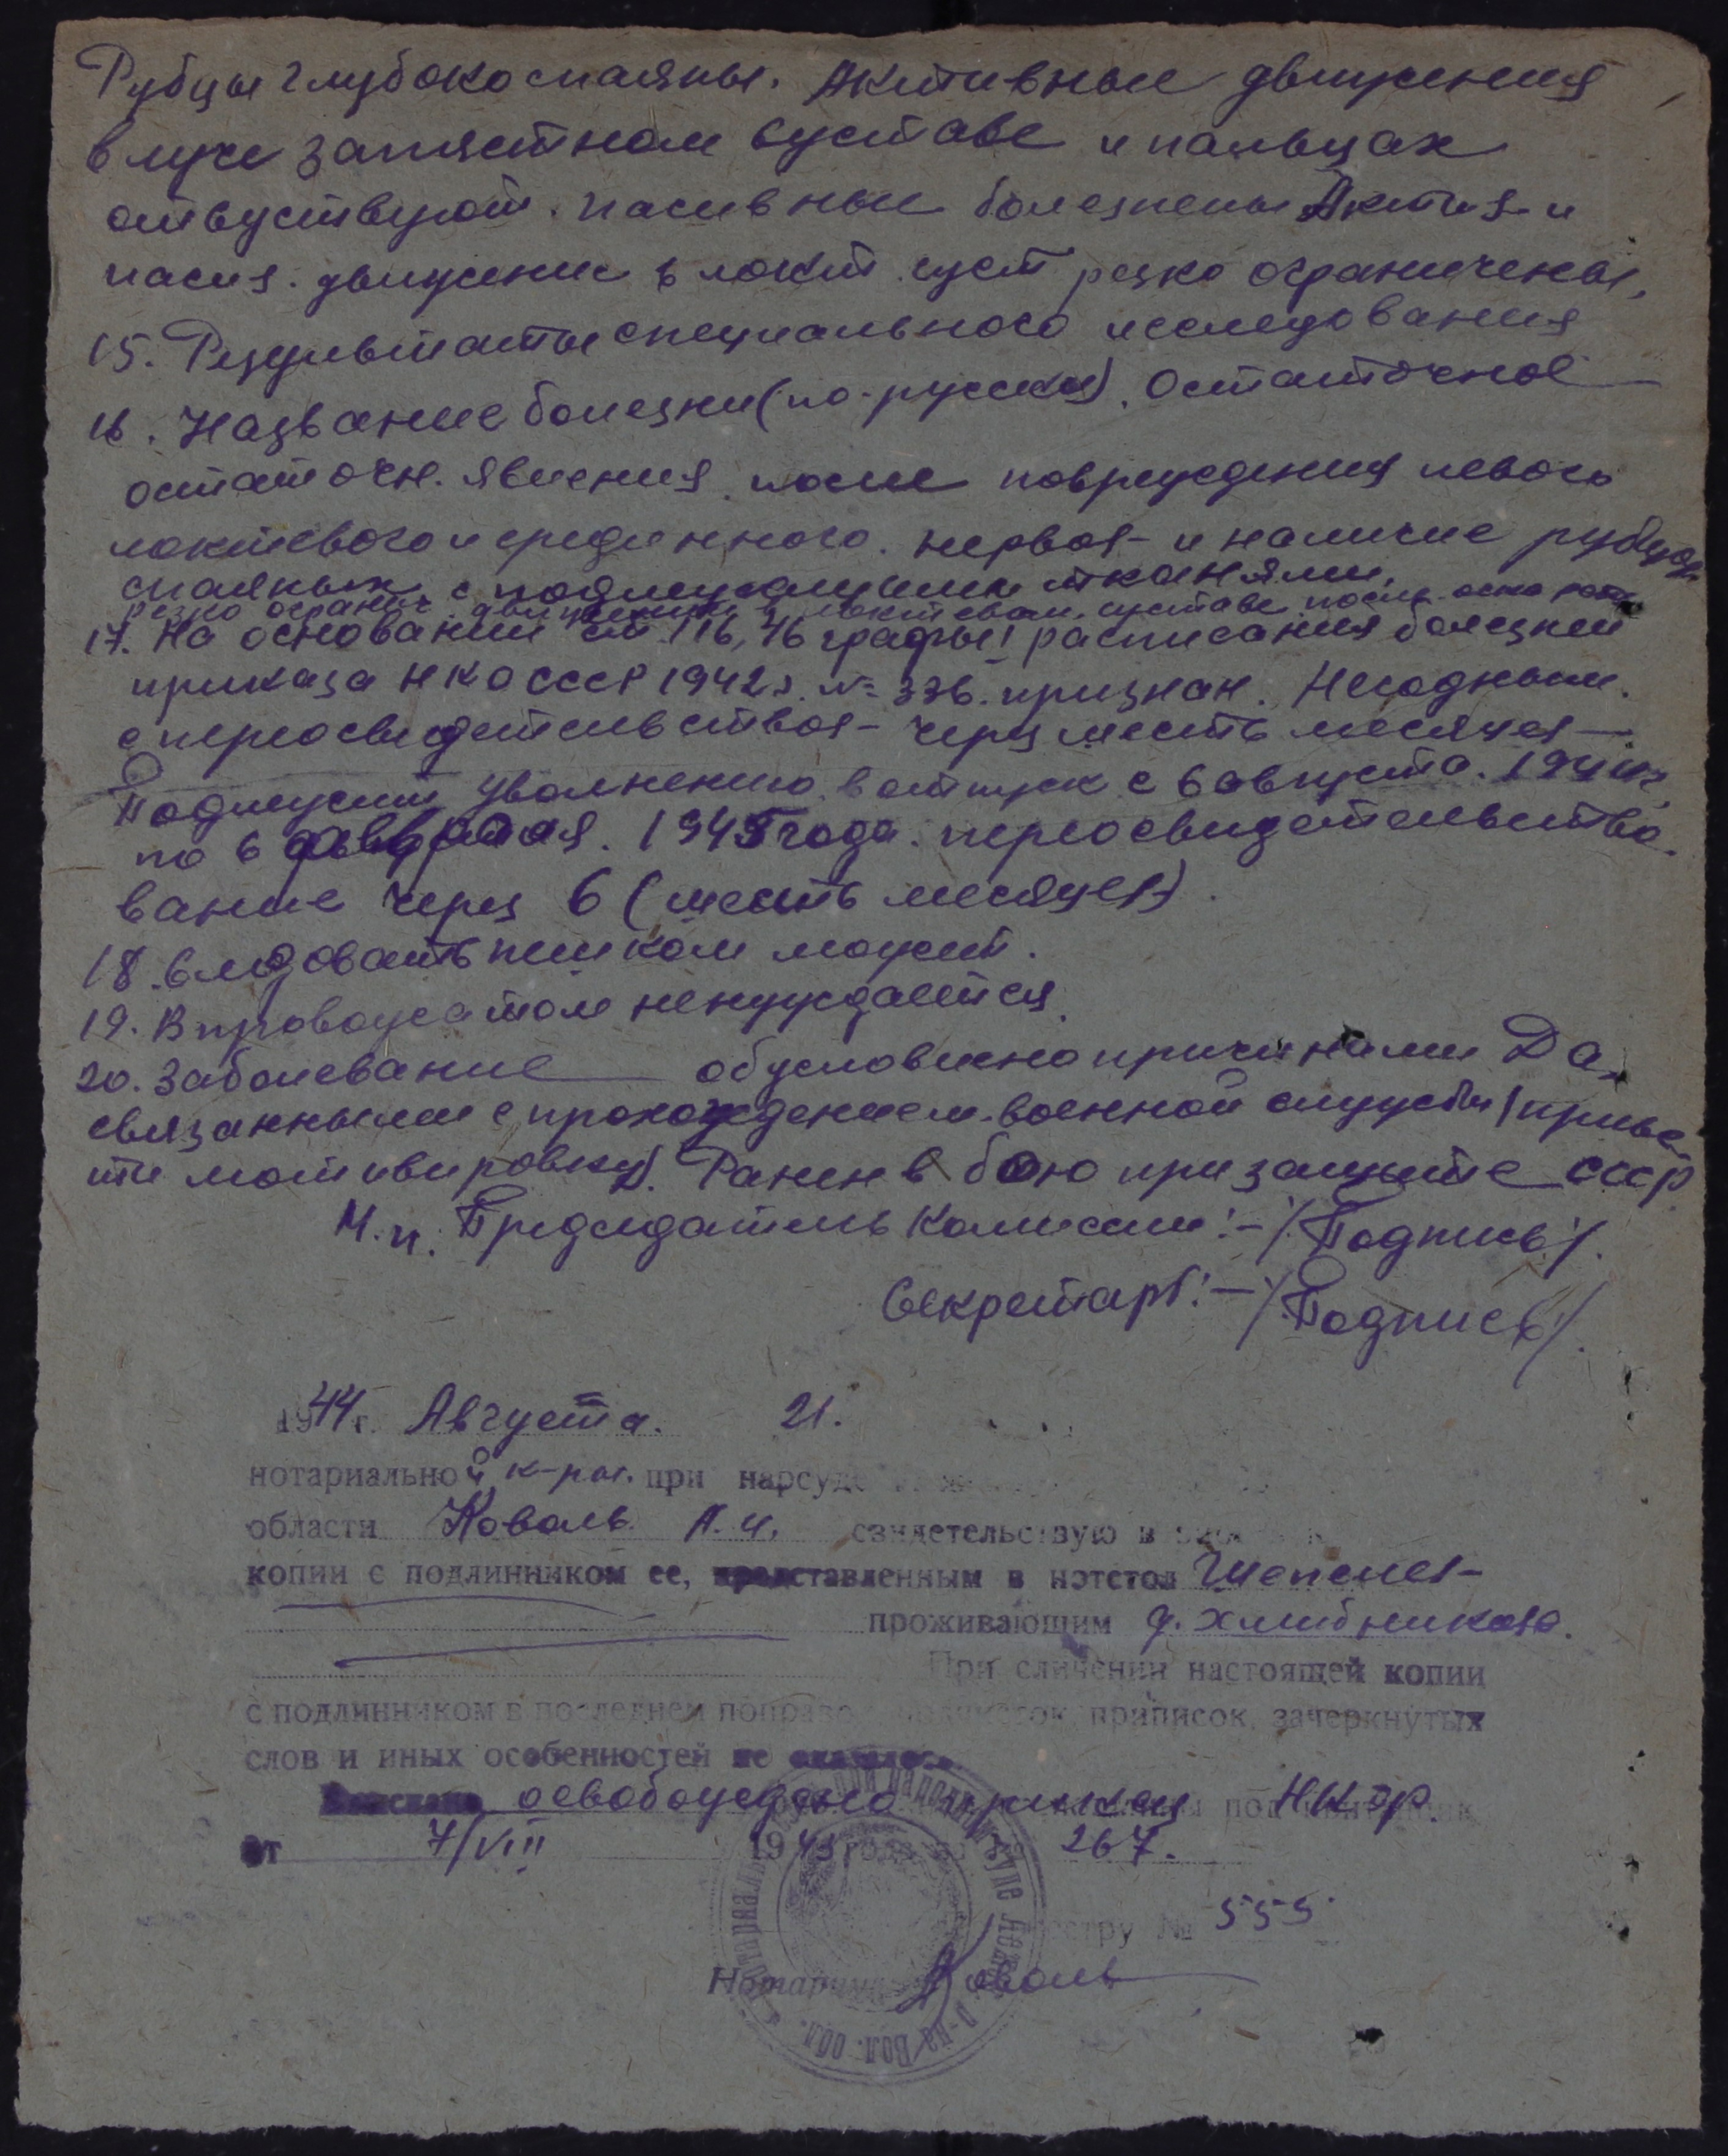 Рубцы глубоко спаяны. Активные движения
в луче запястном суставе и пальцах
отсуствуют. Пасивные болезнены Актив и
пасив. движение в локт. суст резко ограничены,
15. Результаты специального исследования
16. Название болезни (по-русски). Остаточное
остаточн. явления после повреждения левого
локтевого и срединного. нервов и наличие рубцов
спаяных с подлежащими тканями.
резко огранич. движения в локтевом суставе после
17. На основании ст. 116, 76 графы I расписания болезней
приказа НКО СССР 1942 г. № 336. признан. Негодным.
с переосвидетельством через шесть месяцев
Подлежит уволнению в отпуск с 6 августа. 1944 г.
по 6 февраля. 1945 года. переосвидетельство
вание через 6 (шесть месяцев).
18. Следовать пешком может.
19. В провожатом ненуждается.
20. Заболевание обусловлено причинами Да,
связанными с прохождением военной службы (приве
сти мотивировку). Ранен в бою при защите СССР
М.п. Председатель Комиссии:- /Подпись/.
Секретарь:- /Подпись/.
1944 г. Августа. 21.
нотариальной к-ры. при нарсуде
области Коваль А. И. свидетельствую
копии с подлинником ее, представленным в нотстол Шепелев
проживающим д.
При сличении настоящей копии
с подлинником в последнем поправок приписок, зачеркнутых
слов и иных особенностей не оказалось
Взыскано освобождено приказ НКФ
от 7/VIII 1943 года № 267.
реестру № 555
Нотариус Коваль
р-на Вол. обл.